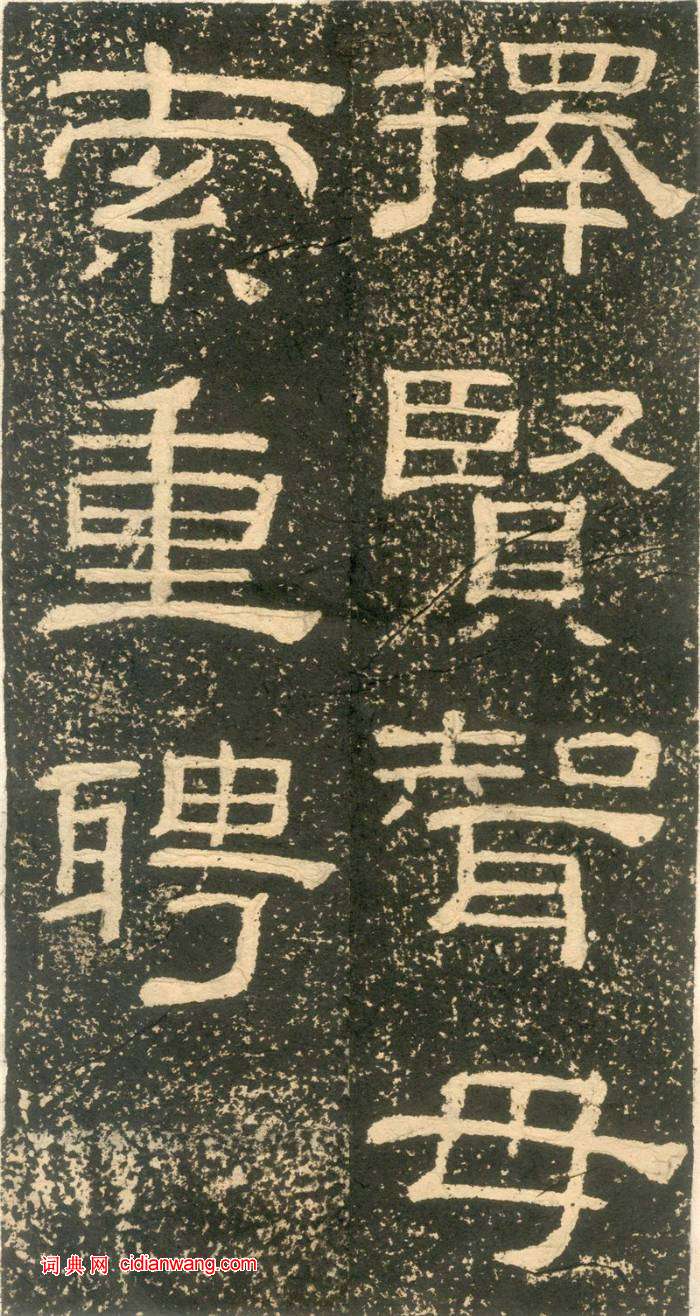 擇賢聟毋
索重聘
词典网 cidianwang.com